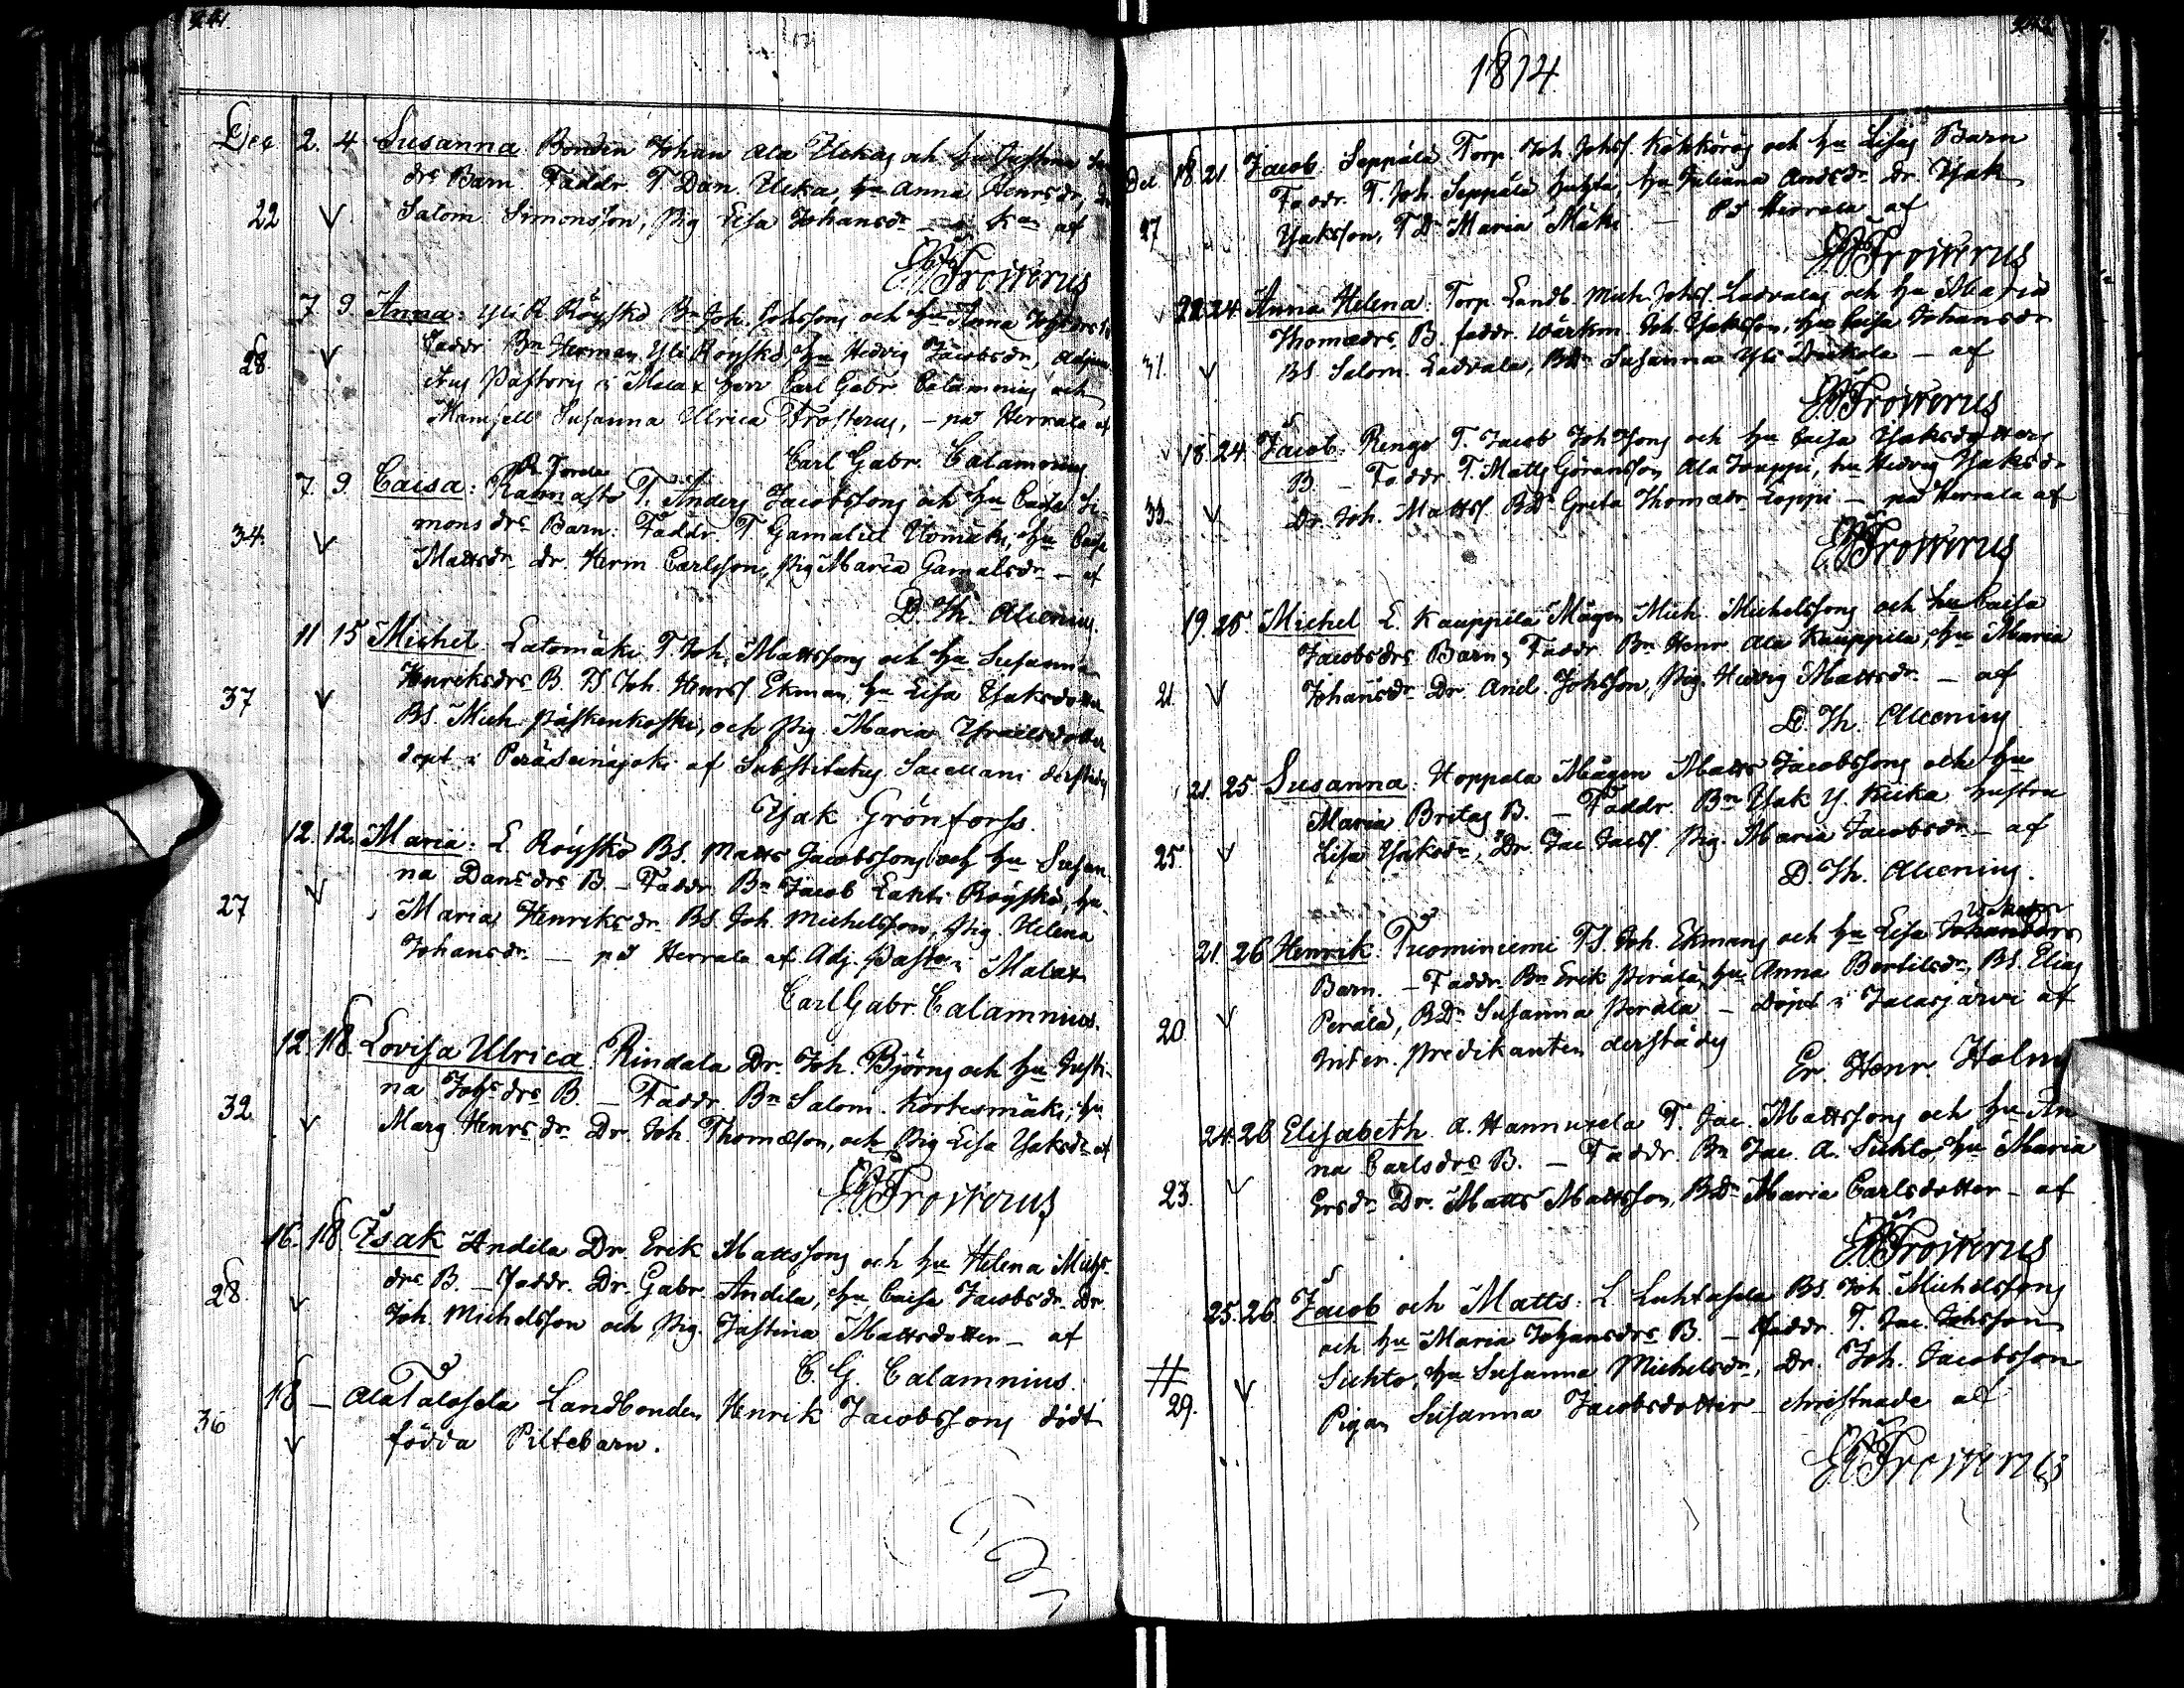 241.
Dec 2. 4 Susanna Bonden Johan Ala Ucka och hu Justina
drs Barn. Faddr. T. Dan. Ucka, hu Anna Henrsdr,
22 Salom. Simonsson, Pig Lisa Johansdr — af
EFrosterus
7 9. Anna: Yli R Röyskö Bn Joh. Johssons och hu Anna
28. Faddr Bn Herman Yli Röyskö, hu Hedvig Jacobsdr,
Pastoris i Malax herr Carl Gabr. Calamnius och
Mamsell Susanna Ulrica Frosterus, — på Herrala af
Carl Gabr. Calamnius
7. 9 Caisa: T. Anders Jacobssons och hu Caisa Si-
mons drs Barn: Faddr. T Gamaliel hu Caisa
34. Mattsdr Dr. Herm Carlsson, Pig Maria Gamalsdr — af
D. Th. Alcenius.
11 15 Michel Latomäki T Joh. Mattssons och hu Susanna
Henriksdrs B. TS Joh. Henrs Ekman, hu Lisa Isaksdotter
37 BS. Mich. och Pig Maria Israelsdotter
döpt i Peräseinäjoki af Substitutus Sacellani derstädes
Isak Grönforss.
12. 12. Maria: L Röyskö BS. Matts Jacobssons och hu Susan-
na Dans drs B. — Faddr Bn Jacob Lahti Röyskö, hu
27 Maria Henriksdr BS. Joh. Michelsson, Pig. Helena
Johansdr — på Herrala af Adj. Past. i Malax
Carl Gabr. Calamnius.
12. 18. Lovisa Ulrica. Rindala Dr. Joh. Björns och hu Justi-
na Johs drs B. — Faddr. Bn Salom. Kortesmäki, hu
32 Marg. Henrsdr Dr. Joh. Thomæson, och Pig Lisa Isaksdr af
EFrosterus
16. 18. Isak Andila Dr. Erik Mattssons och hu Helena Michs-
drs B. — Faddr. Dr. Gabr. Andila, hu Caisa Jacobsdr. Dr
28. Joh. Michelsson och Pig. Justina Mattsdotter — af
C. G. Calamnius.
18 — Ala Talosela Landbonden Henrik Jacobssons död
36 födda Piltebarn.
1814
Dec 18. 21 Jacob. Seppälä Torp. Joh. Johss. Kökkörös och hu Lisas Barn
Faddr. T. Joh. Seppälä hu Juliana Andsdr Dr. Isak
27 Isaksson, TDr Maria Mäki — På Herrala af
EFrosterus
22. 24 Anna Helena. Torp Landb. Mich. Johss. Ladvalas och hu Maria
Thomædrs B. faddr. Joh. Isaksson, hu Caisa Johansdr
41. BS. Salom. Ladvala, BDr Susanna Yli — af
EFrosterus
18. 24 Jacob. Rengo T. Jacob Johssons och hu Caisa Isaksdotters
B. — Faddr. T. Matts Göransson Ala Jouppi, hu Hedvig Isaksdr
33. Dr. Joh. Mattss. BDr Greta Thomædr Loppi — på Herrala af
EFrosterus
19. 25 Michel L. Kauppila Mågen Mich. Michelssons och hu Caisa
Jacobsdrs Barn, Faddr Bn Henr Ala Kauppila, hu Maria
21. Johansdr Dr. And Johsson, Pig. Hedvig Mattsdr — af
D. Th. Alcenius
21. 25 Susanna. Hoppala Mågen Matts Jacobssons och hu
Maria Britas B. — Faddr. Bn Isak Y. hustru
25. Lisa Isaksdr, Dr. Jac Jacs. Pig. Maria Jacobsdr — af
D. Th. Alcenius.
21. 26 Henrik. Tuominiemi TS. Joh. Ekmans och hu Lisa
Barn. — Faddr Bn Erik Perälä, hu Anna Bertilsdr, BS. Elias
20 Perälä, BDr Susanna Perälä — döpt i Jalasjärvi af
Predikanten derstädes
Er. Henr. Holm
24. 26 Elisabeth. A. Hannuxela T. Jac. Mattssons och hu An
na Carlsdrs B. — Faddr. Bn Jac. A. Suhto, hu Maria
23. Ersdr Dr. Matts Mattsson, BDr Maria Carlsdotter — af
EFrosterus
25. 26. Jacob och Matts: L Luhtasela BS. Joh. Michelssons
och hu Maria Johansdrs B. — faddr. T. Jac. Johsson
# Suhto, hu Susanna Michelsdr, Dr. Joh. Jacobsson
29. Pigan Susanna Jacobsdotter christnade af
EFrosterus